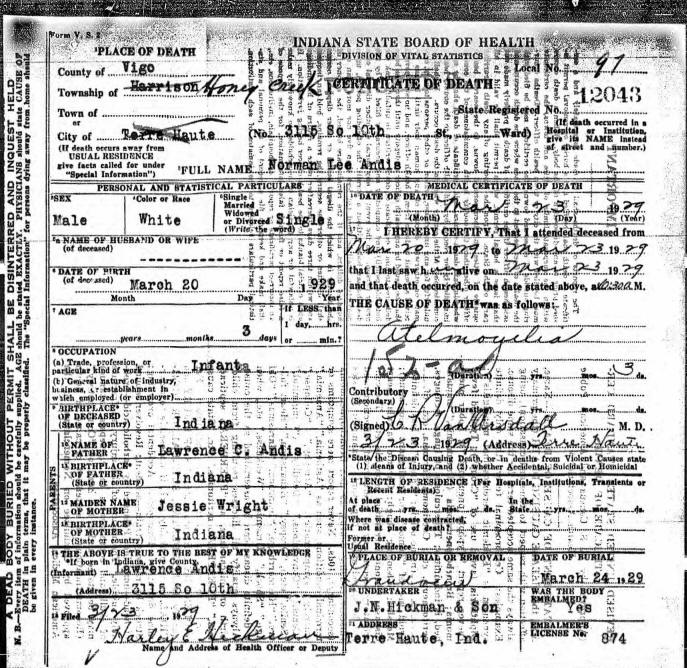 Form V. S. 2
INDIANA STATE BOARD OF HEALTH
DIVISION OF VITAL STATISTICS
¹PLACE OF DEATH
County of Vigo
Local No. 97
Township of Harrison Honey Creek
CERTIFICATE OF DEATH
12043
Town of
or
State Registered No.
City of Terre Haute (No. 3115 So 10th St., Ward)
(If death occurred in a Hospital or Institution, give its NAME instead of street and number.)
(If death occurs away from
USUAL RESIDENCE
give facts called for under
"Special Information")
²FULL NAME Norman Lee Andis
PERSONAL AND STATISTICAL PARTICULARS
³SEX
Male
⁴Color or Race
White
⁵Single
Married
Widowed
or Divorced Single
(Write the word)
⁵ᵃ NAME OF HUSBAND OR WIFE
(of deceased)
⁶ DATE OF BIRTH
(of deceased) March 20 , 1929
Month Day Year
⁷ AGE
If LESS than
1 day, hrs.
3
years months days or min.?
⁸ OCCUPATION
(a) Trade, profession, or
particular kind of work Infant
(b) General nature of industry,
business, or establishment in
which employed (or employer)
⁹ BIRTHPLACE*
OF DECEASED
(State or country) Indiana
PARENTS
¹⁰ NAME OF
FATHER Lawrence C. Andis
¹¹ BIRTHPLACE*
OF FATHER
(State or country) Indiana
¹² MAIDEN NAME
OF MOTHER Jessie Wright
¹³ BIRTHPLACE*
OF MOTHER
(State or country) Indiana
¹⁴ THE ABOVE IS TRUE TO THE BEST OF MY KNOWLEDGE
*If born in Indiana, give County.
(Informant) Lawrence Andis
(Address) 3115 So 10th
¹⁵ Filed 3/23 1929
Harley E Hickman
Name and Address of Health Officer or Deputy
MEDICAL CERTIFICATE OF DEATH
¹⁶ DATE OF DEATH
Mar 23 1929
(Month) (Day) (Year)
¹⁷ I HEREBY CERTIFY, That I attended deceased from
Mar 20 1929 to Mar 23 1929
that I last saw h alive on Mar 23 1929
and that death occurred, on the date stated above, at M.
THE CAUSE OF DEATH* was as follows:
(Duration) yrs. mos. 3 ds.
Contributory
(Secondary)
(Duration) yrs. mos. ds.
(Signed) M. D.
3/23 1929 (Address) Terre Haute
*State the Disease Causing Death, or in deaths from Violent Causes state
(1) Means of Injury, and (2) whether Accidental, Suicidal or Homicidal
¹⁸ LENGTH OF RESIDENCE (For Hospitals, Institutions, Transients or
Recent Residents)
At place
of death yrs. mos. ds.
In the
State yrs. mos. ds.
Where was disease contracted,
if not at place of death?
Former or
Usual Residence
¹⁹ PLACE OF BURIAL OR REMOVAL
DATE OF BURIAL
March 24 1929
²⁰ UNDERTAKER
J.N.Hickman & Son
WAS THE BODY
EMBALMED?
Yes
²¹ ADDRESS
Terre Haute, Ind.
EMBALMER'S
LICENSE No. 874
A DEAD BODY BURIED WITHOUT PERMIT SHALL BE DISINTERRED AND INQUEST HELD
N. B.—Every item of information should be carefully supplied. AGE should be stated EXACTLY. PHYSICIANS should state CAUSE OF
DEATH in plain terms, that it may be properly classified. The "Special Information" for persons dying away from home should
be given in every instance.